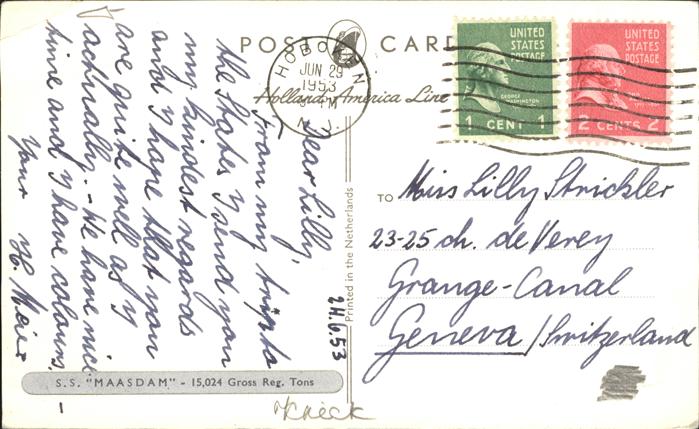 POST CARD
Holland-America Line
HOBOKEN
JUN 29
1953
PM
N. J.
UNITED
STATES
POSTAGE
GEORGE
WASHINGTON
1 CENT 1
UNITED
STATES
POSTAGE
2 CENTS 2
24.6.53
Dear Lilly,
From my trip to
the States I send you
my kindest regards
and I hope that you
are quite well as I
actually. - We have nice
time and I have colours.
Your H. Meier
TO Miss Lilly Strickler
23-25 ch. de Verey
Grange-Canal
Geneva / Switzerland
Printed in the Netherlands
S.S. "MAASDAM" - 15,024 Gross Reg. Tons